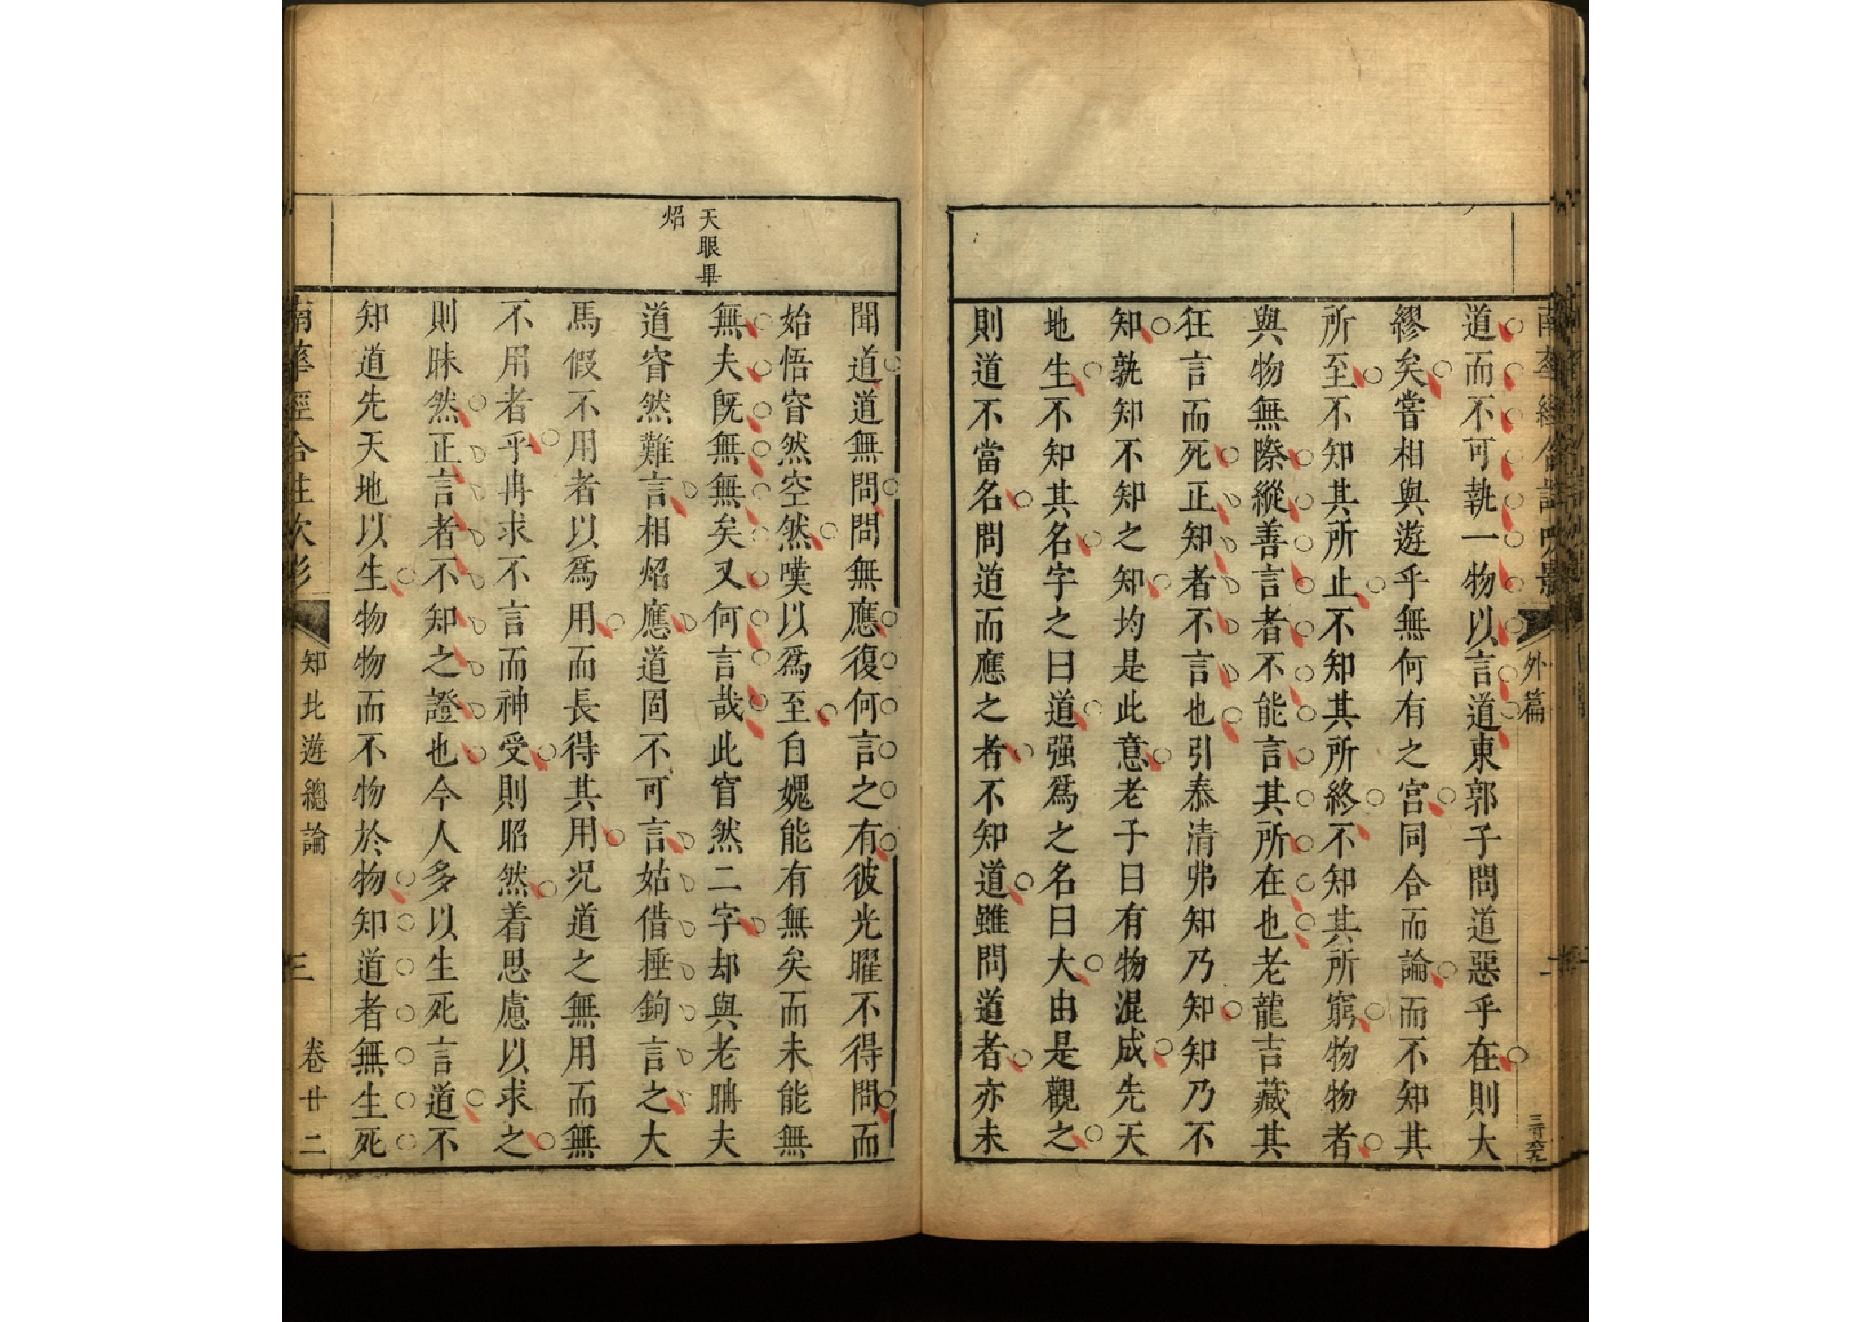 外篇
道而不可執一物以言道東郭子問道惡乎在則大
繆矣嘗相與遊乎無何有之宮同合而論而不知其
所至不知其所止不知其所終不知其所窮物物者
與物無際縱善言者不能言其所在也老龍吉藏其
狂言而死正知者不言也引泰清弗知乃知知乃不
知孰知不知之知均是此意老子曰有物混成先天
地生不知其名字之曰道强爲之名曰大由是觀之
則道不當名問道而應之者不知道雖問道者亦未
聞道道無問問無應復何言之有彼光曜不得問而
始悟窅然空然嘆以爲至自媿能有無矣而未能無
無夫旣無無矣又何言哉此窅然二字却與老聃夫
天眼畢
道窅然難言相炤應道固不可言姑借捶鉤言之大
炤
馬假不用者以爲用而長得其用况道之無用而無
不用者乎冉求不言而神受則昭然着思慮以求之
則昧然正言者不知之證也今人多以生死言道不
知道先天地以生物物而不物於物知道者無生死
南華經合註吹影
知北遊總論
三
卷廿二